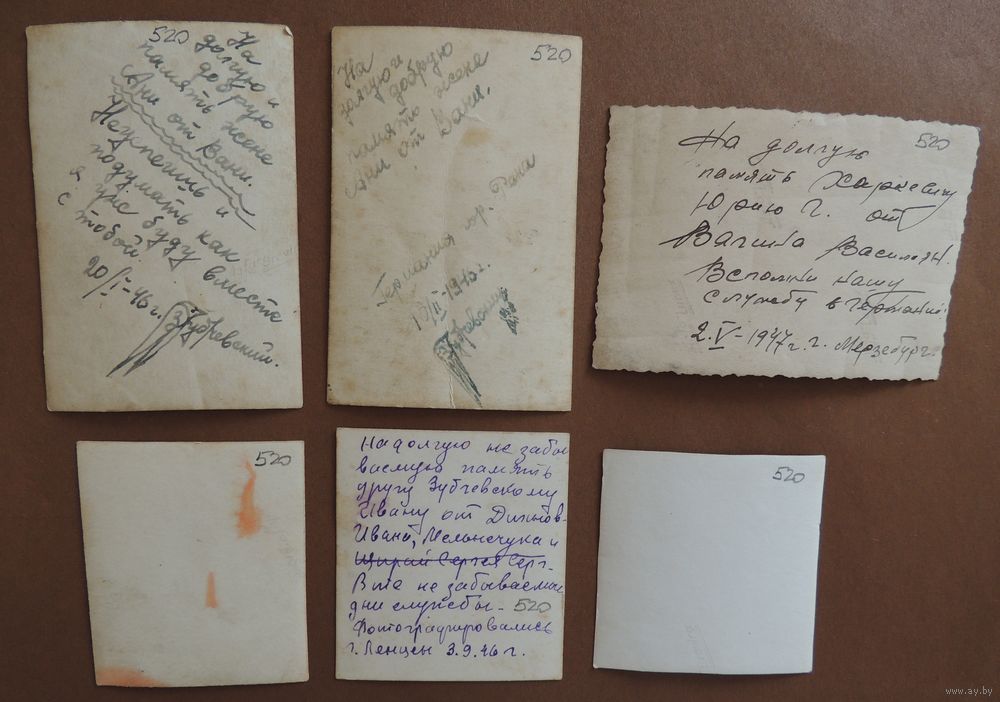 520
На
долгую и
добрую
память жене
Ани от Вани.
Неупешишь и
подумать как
я уже буду вместе
с тобой.
20/I-46 г.
Зубчевский.
520
На
долгую и
добрую
память жене
Ани от Вани.
Германия гор.
13/III-1946 г.
Зубчевский
520
На долгую
память Харкевичу
Юрию Г. от
Вагина Василия.
Вспомни нашу
службу в Германии.
2.V-1947 г. г. Мерзебург.
520
На долгую не забы
ваемую память
другу Зубчевскому
Ивану от
Ивана, Мельничука и
Сергея Серг.
В те не забываемые
дни службы-
520
Фотографировались
г. Ленцен 3.9.46 г.
520
www.ay.by